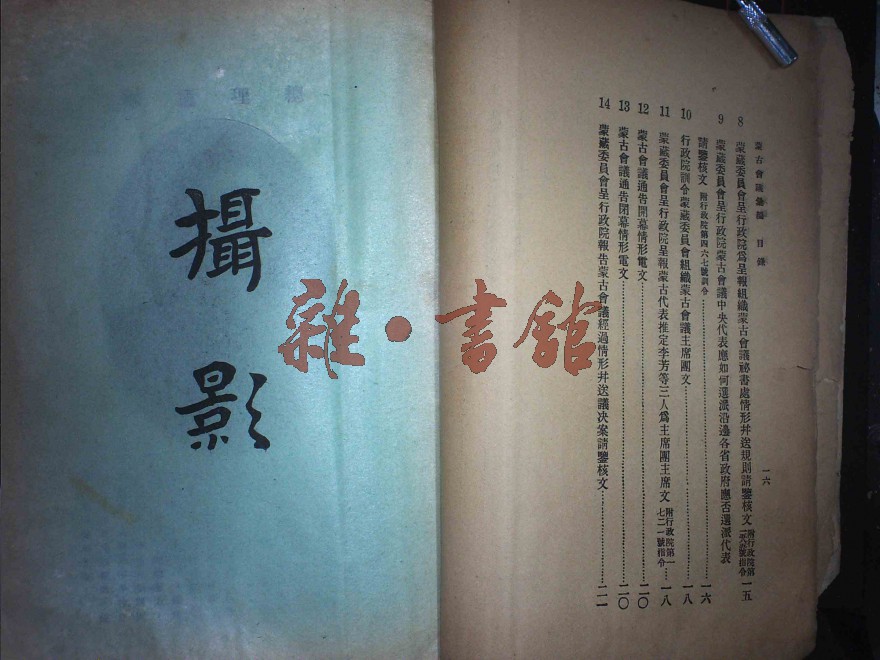 蒙古會議彙編 目錄
一六
8 蒙藏委員會呈行政院爲呈報組織蒙古會議祕書處情形幷送規則請鑒核文 附行政院第 號指令 一五
9 蒙藏委員會呈行政院蒙古會議中央代表應如何選派沿邊各省政府應否選派代表
請鑒核文 附行政院第四六七號訓令 一六
10 行政院訓令蒙藏委員會組織蒙古會議主席團文 一八
11 蒙藏委員會呈行政院呈報蒙古代表推定李芳等三人爲主席團主席文 附行政院第一七二一號指令 一八
12 蒙古會議通告開幕情形電文 二〇
13 蒙古會議通告閉幕情形電文 二〇
14 蒙藏委員會呈行政院報告蒙古會議經過情形幷送議决案請鑒核文 二一
攝影
雜·書館